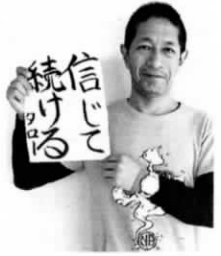 信じて
続ける
タロー